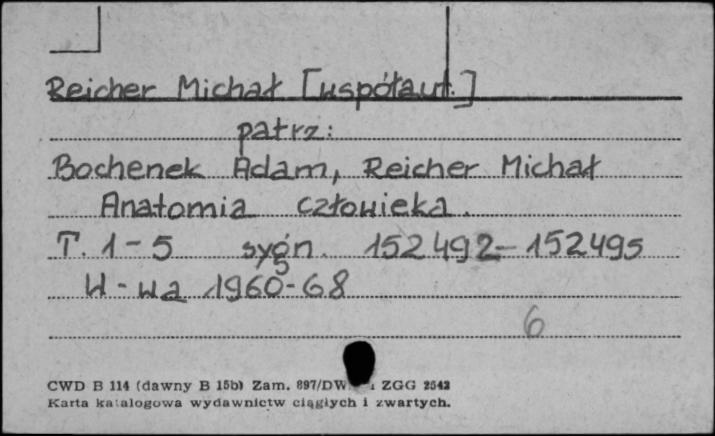 Reicher Michał [współaut.]
patrz:
Bochenek Adam, Reicher Michał
Anatomia człowieka.
T. 1-5 sygn. 152492-152495
W-wa 1960-68
6
CWD B 114 (dawny B 15b) Zam. 897/DW ZGG 2542
Karta katalogowa wydawnictw ciągłych i zwartych.